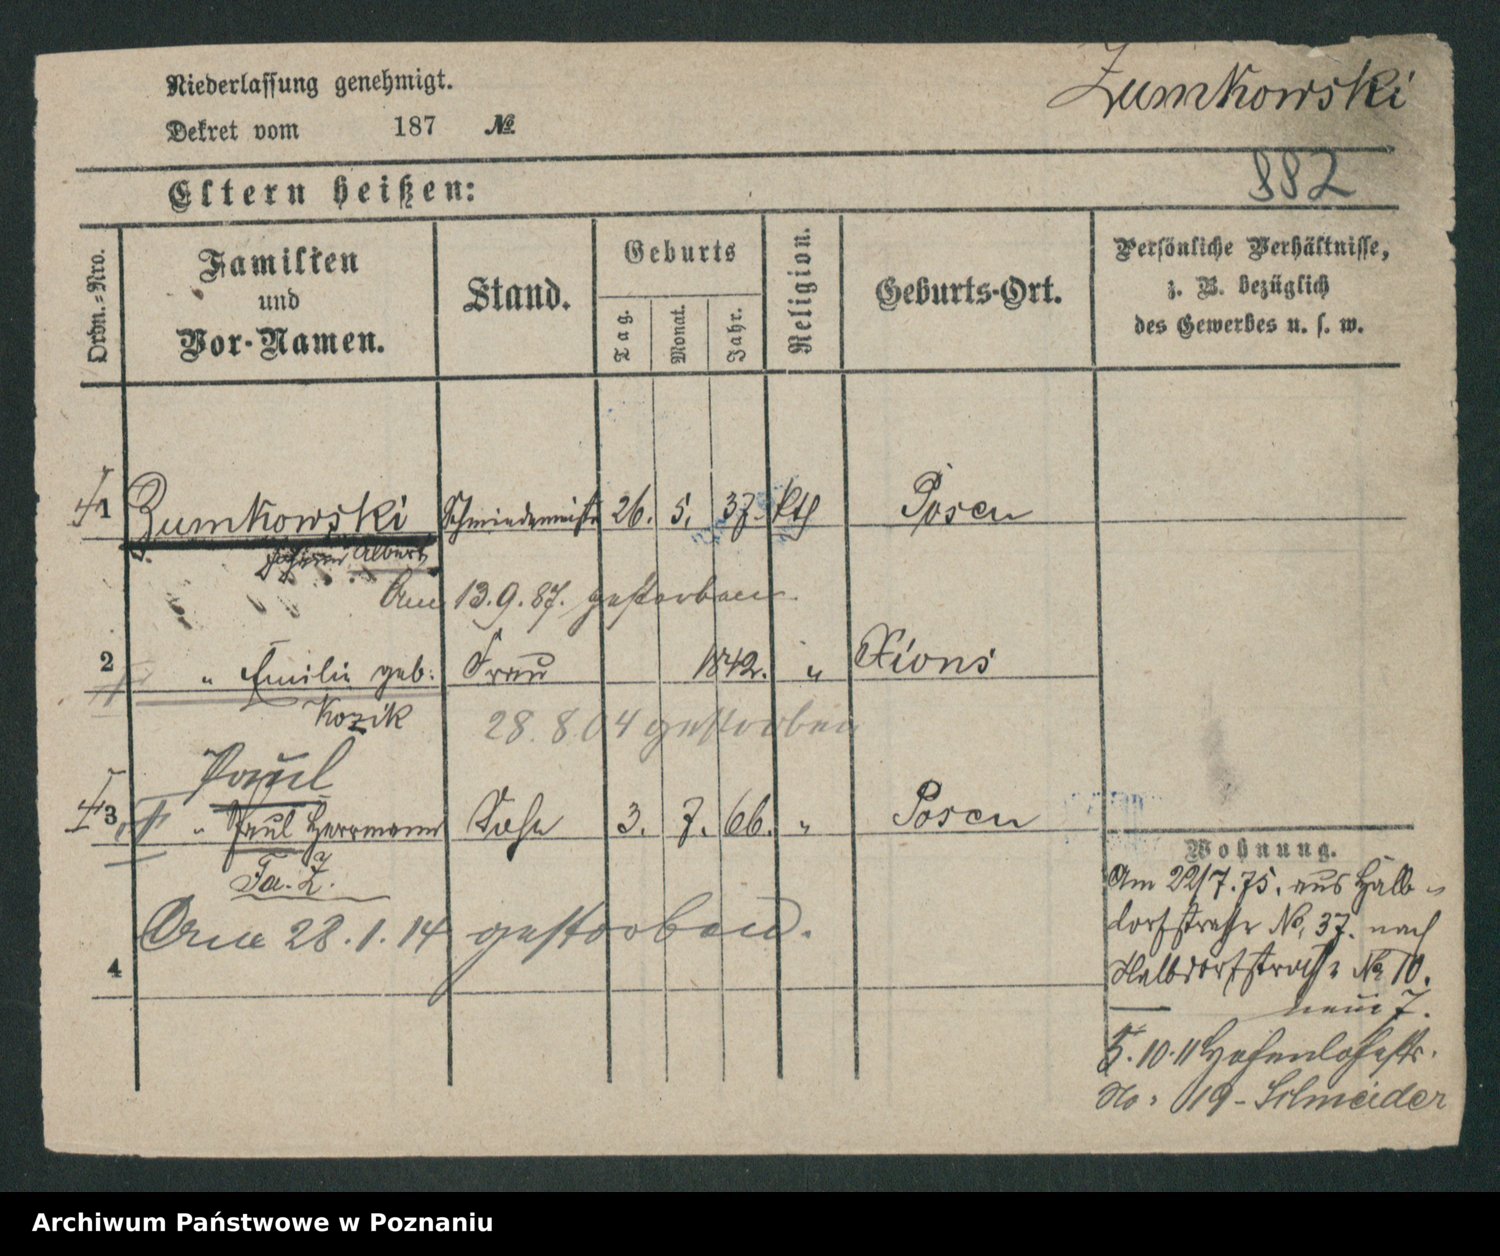 Niederlassung genehmigt.
Zumkowski
Dekret vom 187 №
882
Eltern heißen:
Ordn.-Nro.
Familien
und
Vor-Namen.
Stand.
Geburts
Tag.
Monat.
Jahr.
Religion.
Geburts-Ort.
Persönliche Verhältnisse,
z. B. bezüglich
des Gewerbes u. s. w.
1 Zumkowski Schmiedemeistr 26. 5. 37. kth Posen
Albert
Am 13.9.87. gestorben.
2 " Emilie geb: Frau 1842. " Xions
Kozik
28.8.04 gestorben
Paul
3 " Paul Herrmann Sohn 3. 7. 66. " Posen
Fa. Z.
Am 28.1.14 gestorben.
4
Wohnung.
Am 22/7.75. aus Halb-
dorfstraße No. 37. nach
Halbdorfstraße No 10.
neue 7.
5.10.11 Hohenlohestr.
No: 19 - Schneider
Archiwum Państwowe w Poznaniu